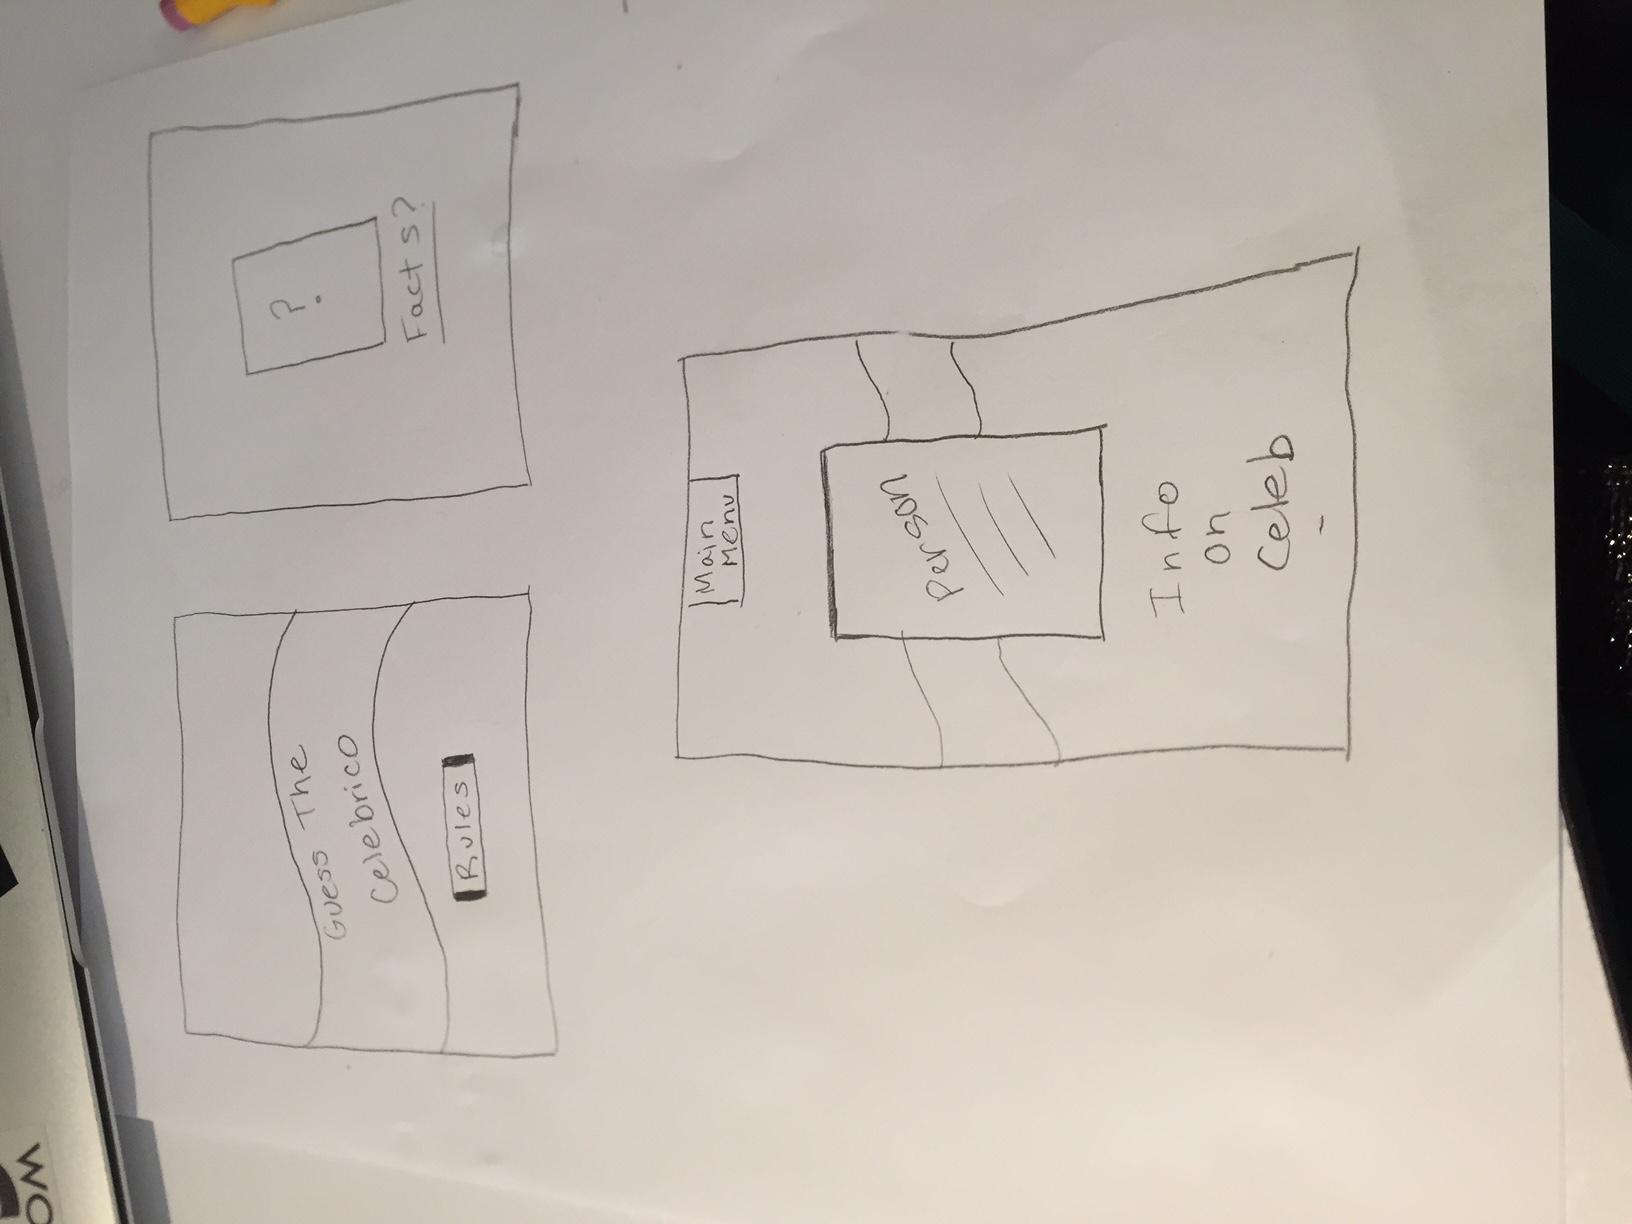 Guess The
Celebrico
Rules
?
Facts?
Main
Menu
Person
Info
on
Celeb